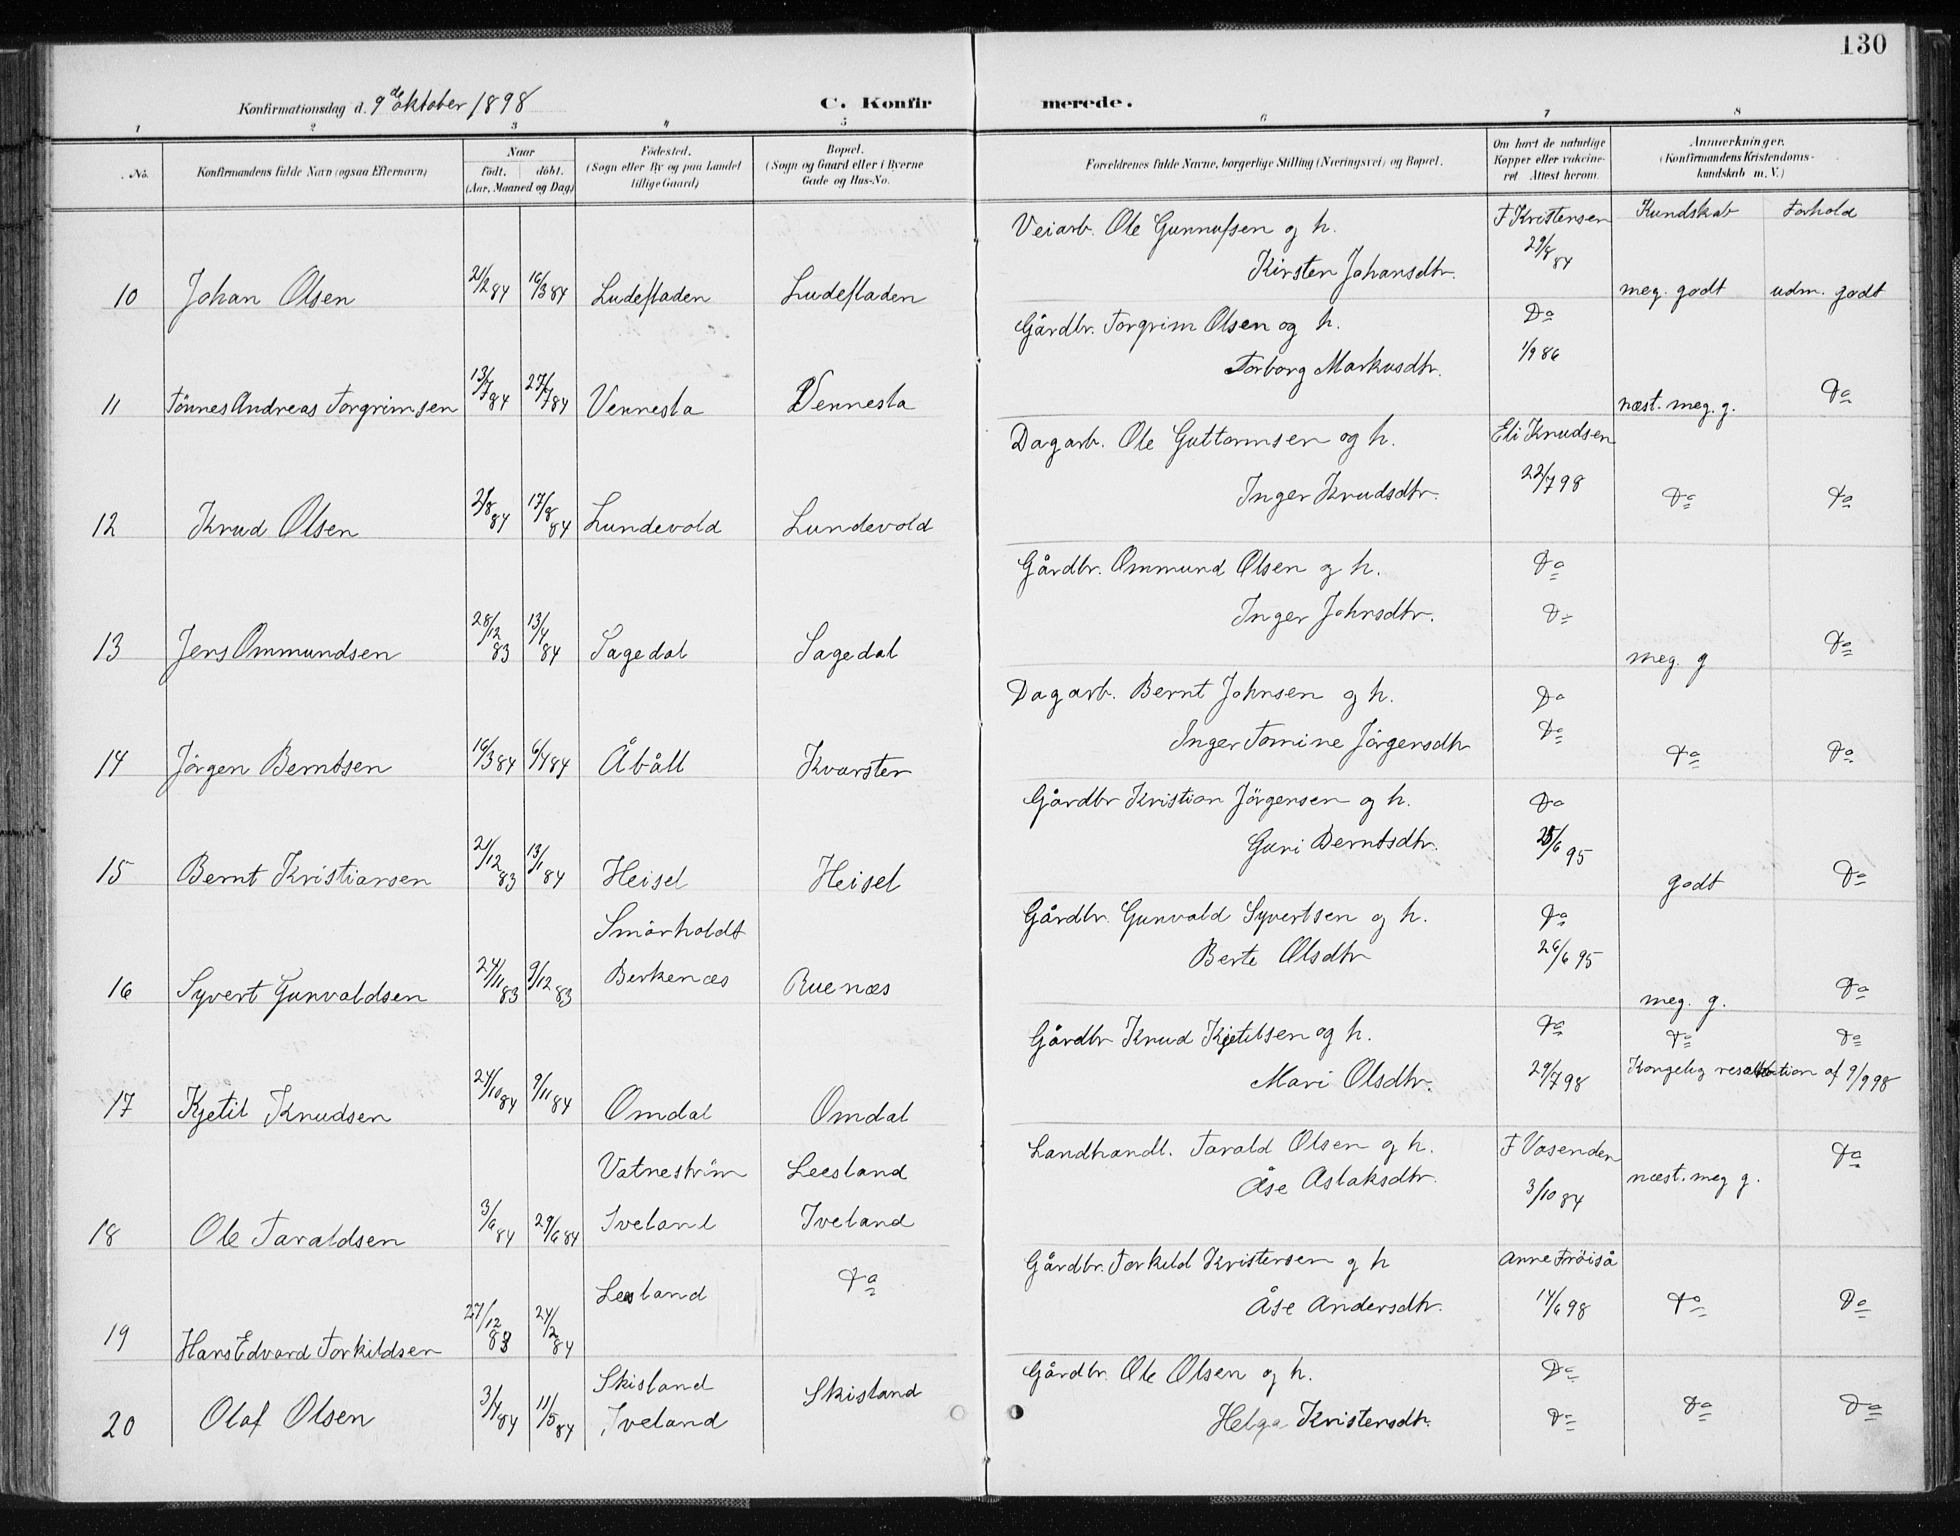 130
Konfirmationsdag d. 9de oktober 1898
C. Konfirmerede.
1 2 3 4 5 6 7 8
No.
Konfirmandens fulde Navn (ogsaa Efternavn)
Naar
födt. döbt.
(Aar, Maaned og Dag)
Födested.
(Sogn eller By og paa Landet
tillige Gaard)
Bopæl.
(Sogn og Gaard eller i Byerne
Gade og Hus-No.
Forældrenes fulde Navne, borgerlige Stilling (Næringsvei) og Bopæl.
Om havt de naturlige
Kopper eller vakcine-
ret. Attest herom.
Anmærkninger.
(Konfirmandens Kristendoms-
kundskab m. V.)
Kundskab Forhold
Veiarb. Ole Gunnufsen og h. F Kristensen
Kirsten Johansdtr. 29/8 84
10 Johan Olsen 21/2 84 16/3 84 Ludefladen Ludefladen meg. godt udm. godt
Gårdbr. Torgrim Olsen og h. Do
Torborg Markusdtr. 1/9 86
11 Tönnes Andreas Torgrimsen 13/7 84 27/7 84 Vennesla Vennesla næst. meg. g. Do
Dagarb. Ole Guttormsen og h. Eli Knudsen
Inger Knudsdtr. 22/7 98
12 Knud Olsen 2/8 84 17/8 84 Lundevold Lundevold Do Do
Gårdbr. Ommund Olsen og h. Do
Inger Johnsdtr. Do
13 Jens Ommundsen 28/12 83 13/4 84 Sagedal Sagedal meg. g Do
Dagarb. Bernt Johnsen og h. Do
Inger Tomine Jörgensdtr Do
14 Jörgen Berntsen 16/3 84 6/4 84 Åbåll Kvarsten Do Do
Gårdbr Kristian Jörgensen og h. Do
Guri Berntsdtr. 25/6 95
15 Bernt Kristiansen 21/12 83 13/1 84 Heisel Heisel godt Do
Smörholdt Gårdbr. Gunvald Syvertsen og h. Do
Berte Olsdtr 26/6 95
16 Syvert Gunvaldsen 24/11 83 9/12 83 Berkenæs Ruenæs meg. g. Do
Gårdbr Knud Kjetilsen og h. Do Do Do
Mari Olsdtr. 29/7 98 Kongelig resolution af 9/9 98
17 Kjetil Knudsen 24/10 84 9/11 84 Omdal Omdal
Vatneström Leesland Landhandl. Tarald Olsen og h. F Vasenden næst. meg g. Do
Åse Aslaksdtr. 3/10 84
18 Ole Taraldsen 3/6 84 29/6 84 Iveland Iveland
Leesland Do Gårdbr. Torkild Kristensen og h Anne Fröiså
Åse Andersdtr. 14/6 98 Do Do
19 Hans Edvard Torkildsen 27/12 83 24/2 84
Skisland Skisland Gårdbr. Ole Olsen og h. Do
20 Olaf Olsen 3/4 84 11/5 84 Iveland Helga Kristensdtr. Do Do Do